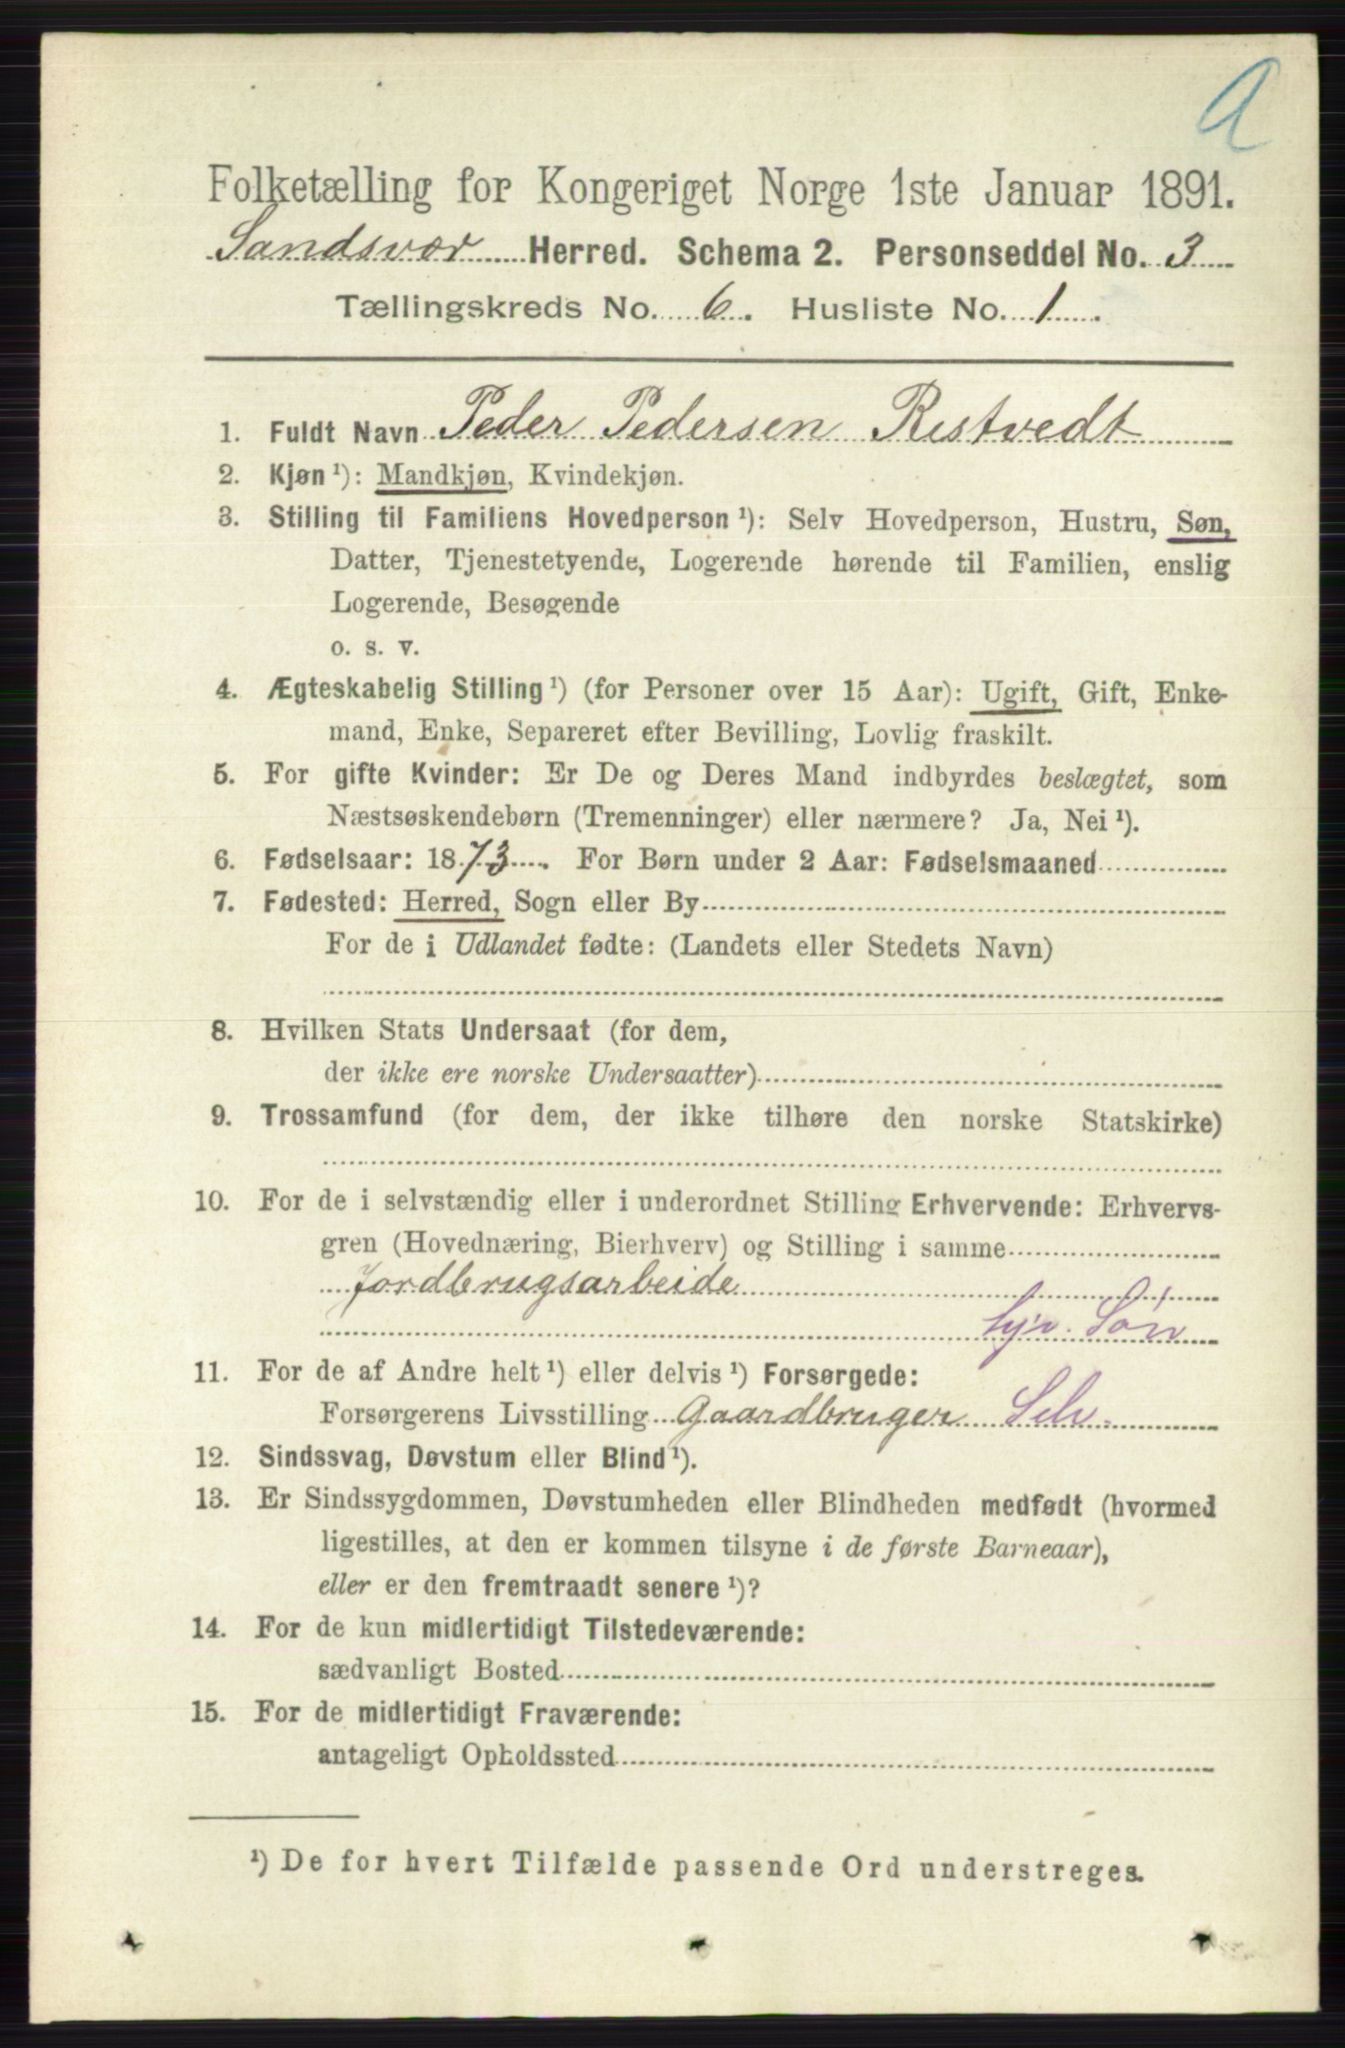 A
Folketælling for Kongeriget Norge 1ste Januar 1891.
Sandsvær Herred. Schema 2. Personseddel No. 3
Tællingskreds No. 6. Husliste No. 1.
1. Fuldt Navn Peder Pedersen Ristvedt
2. Kjøn ¹): Mandkjøn, Kvindekjøn.
3. Stilling til Familiens Hovedperson ¹): Selv Hovedperson, Hustru, Søn,
Datter, Tjenestetyende, Logerende hørende til Familien, enslig
Logerende, Besøgende
o. s. v.
4. Ægteskabelig Stilling ¹) (for Personer over 15 Aar): Ugift, Gift, Enke-
mand, Enke, Separeret efter Bevilling, Lovlig fraskilt.
5. For gifte Kvinder: Er De og Deres Mand indbyrdes beslægtet, som
Næstsøskendebørn (Tremenninger) eller nærmere? Ja, Nei ¹).
6. Fødselsaar: 1873. For Børn under 2 Aar: Fødselsmaaned
7. Fødested: Herred, Sogn eller By
For de i Udlandet fødte: (Landets eller Stedets Navn)
8. Hvilken Stats Undersaat (for dem,
der ikke ere norske Undersaatter)
9. Trossamfund (for dem, der ikke tilhøre den norske Statskirke)
10. For de i selvstændig eller i underordnet Stilling Erhvervende: Erhvervs-
gren (Hovednæring, Bierhverv) og Stilling i samme
Jordbrugsarbeide
Søn
11. For de af Andre helt ¹) eller delvis ¹) Forsørgede:
Forsørgerens Livsstilling Gaardbruger Selv.
12. Sindssvag, Døvstum eller Blind ¹).
13. Er Sindssygdommen, Døvstumheden eller Blindheden medfødt (hvormed
ligestilles, at den er kommen tilsyne i de første Barneaar),
eller er den fremtraadt senere ¹)?
14. For de kun midlertidigt Tilstedeværende:
sædvanligt Bosted
15. For de midlertidigt Fraværende:
antageligt Opholdssted
¹) De for hvert Tilfælde passende Ord understreges.